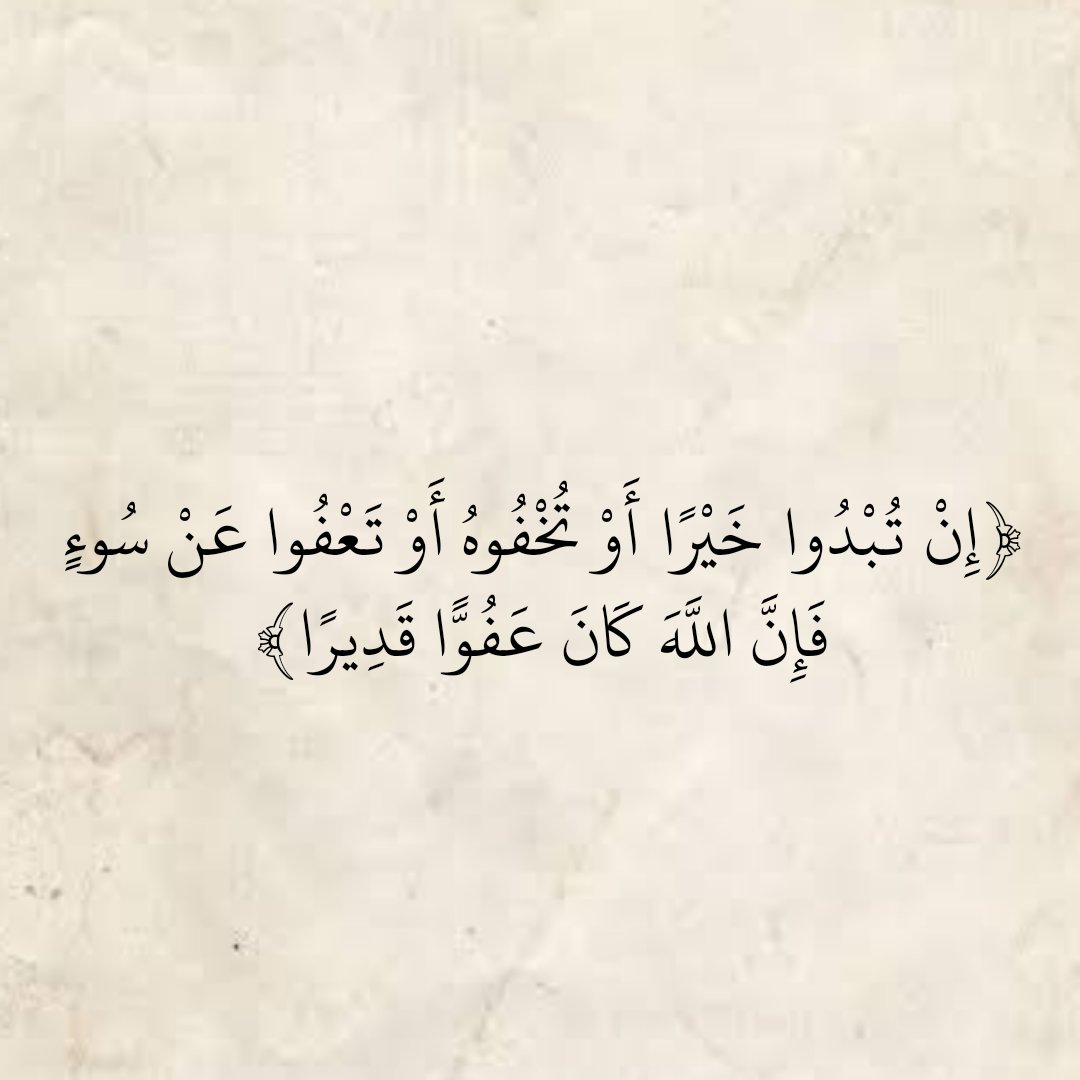 ﴿إِنْ تُبْدُوا خَيْرًا أَوْ تُخْفُوهُ أَوْ تَعْفُوا عَنْ سُوءٍ
فَإِنَّ اللَّهَ كَانَ عَفُوًّا قَدِيرًا﴾